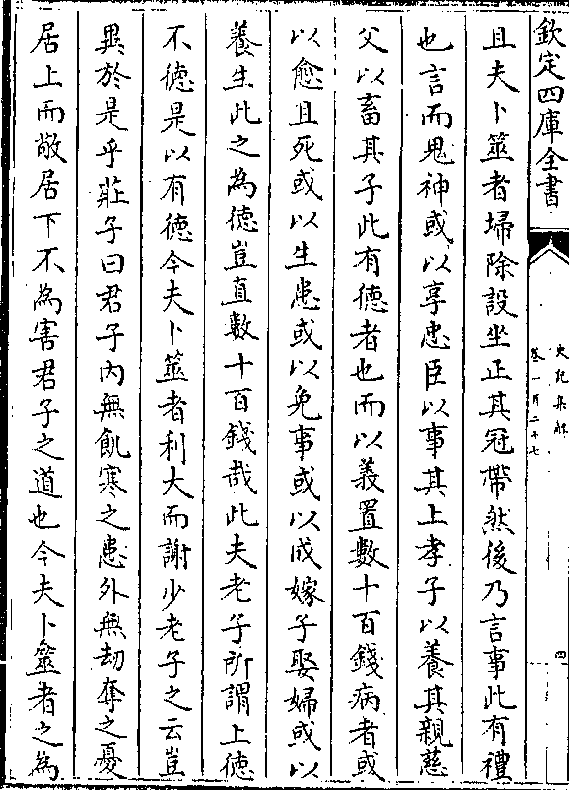 欽定四庫全書
史記集解
卷一百二十七
四
且夫卜筮者埽除設坐正其冠帶然後乃言事此有禮
也言而鬼神或以享忠臣以事其上孝子以養其親慈
父以畜其子此有德者也而以義置數十百錢病者或
以愈且死或以生患或以免事或以成嫁子娶婦或以
養生此之為德豈直數十百錢哉此夫老子所謂上德
不德是以有德今夫卜筮者利大而謝少老子之云豈
異於是乎莊子曰君子內無飢寒之患外無劫奪之憂
居上而敬居下不為害君子之道也今夫卜筮者之為